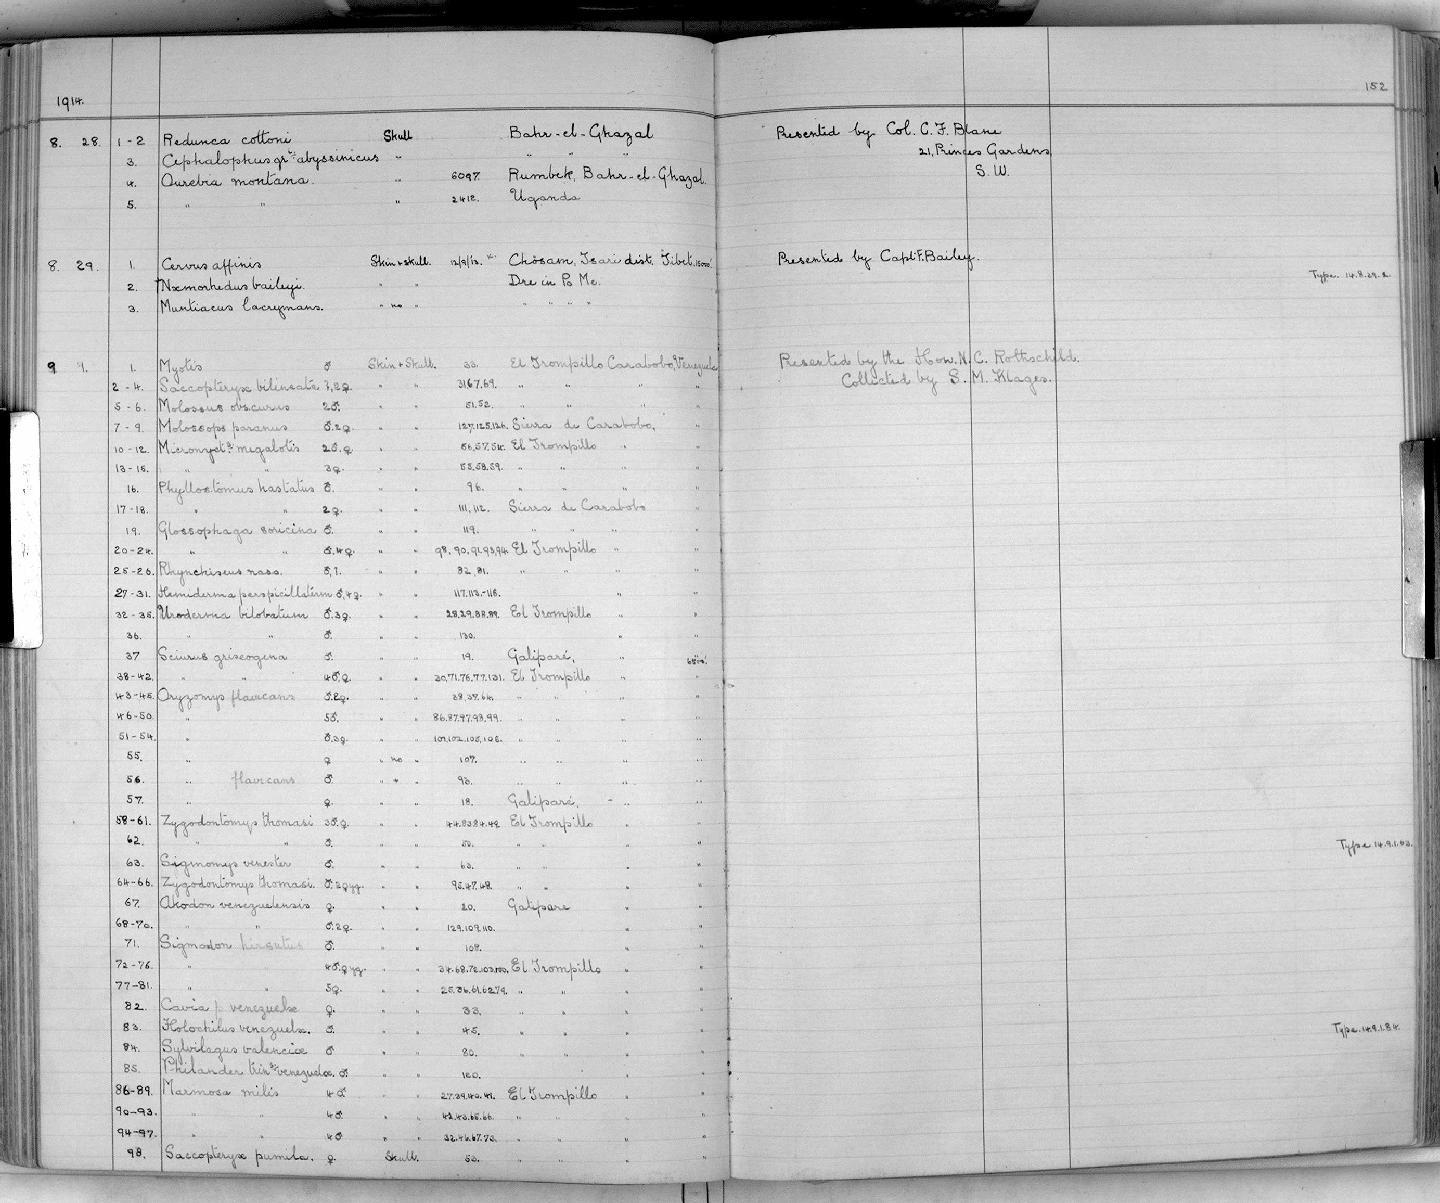 1914.
152
8. 28. 1-2 Redunca cottoni Skull Bahr-el-Ghazal Presented by Col. C. F. Blane
3. Cephalophus gr. abyssinicus " " " " 21, Princes Gardens,
4. Ourebia montana. " 6097. Rumbek, Bahr-el-Ghazal. S. W.
5. " " " 2412. Uganda
8. 29. 1. Cervus affinis Skin + skull. Chösam, Tsari dist. Tibet. Presented by Capt. F. Bailey.
2. Næmorhedus baileyi. " " Dre in Po Me. Type. 14.8.29.2.
3. Muntiacus lacrymans. " no " " " " "
9 1. 1. Myotis ♂ Skin + Skull. 33. El Trompillo Carabobo, Venezuela Presented by the Hon. N. C. Rothschild.
2-4. Saccopteryx bilineata ♂, 2♀. " " 31.67.69. " " " " Collected by S. M. Klages.
5-6. Molossus obscurus 2♂. " " 51.52. " " " "
7-9. Molossops paranus ♂.2♀. " " 127.125.126. Sierra de Carabobo, "
10-12. Micronyct. megalotis 2♂.♀. " " 56.57.54. El Trompillo " "
13-15. " " 3♀. " " 55.58.59. " " " "
16. Phyllostomus hastatus ♂. " " 96. " " " "
17-18. " " 2♀. " " 111,112. Sierra de Carabobo "
19. Glossophaga soricina ♂. " " 119. " " " "
20-24. " " ♂.4♀. " " 98. 90.91.93.94. El Trompillo " "
25-26. Rhynchiscus naso. ♂,?. " " 82,81. " " " "
27-31. Hemiderma perspicillatum ♂,4♀. " " 117.113.-116. " "
32-35. Uroderma bilobatum ♂.3♀. " " 28.29.88.89. El Trompillo " "
36. " " ♂. " " 130. " "
37 Sciurus griseogena ♂. " " 19. Galiparé, "
38-42. " " 4♂.♀. " " 30,71.76.77.131. El Trompillo " "
43-45. Oryzomys flavicans ♂.2♀. " " " " " "
46-50. " 5♂. " " 86.87.97.98.99. " " " "
51-54. " ♂.3♀. " " 101,102.105,106. " " " "
55. " ♀ " no " 107. " " " "
56. " flavicans ♂. " + " 93. " " " "
57. " ♀. " " 18. Galiparé, " "
58-61. Zygodontomys thomasi 3♂.♀. " " 44.83.84.49. El Trompillo " "
62. " " ♂. " " 50. " " " "
63. Sigmomys venester ♂. " " 63. " " Type 14.9.1.63.
64-66. Zygodontomys thomasi. ♂.2♀yg. " " 95.47.48. " " " "
67. Akodon venezuelensis ♀. " " 20. Galipare " "
68-70. " " ♂.2♀. " " 129.109.110. " "
71. Sigmodon hirsutus ♂. " " 108. " "
72-76. " " 4♂.♀yg. " " 34.68.72.103.100. El Trompillo " "
77-81. " " 5♀. " " 25.36.61.62.79. " " " "
82. Cavia p. venezuelæ ♀. " " 33. " " " "
83. Holochilus venezuelæ. ♂. " " 45. " " " " Type. 14.9.1.84.
84. Sylvilagus valenciæ ♂ " " 80. " " " "
85. Philander trin. venezuelæ. ♂. " " 120. " "
86-89. Marmosa mitis 4♂ " " 27.39.40.41. El Trompillo " "
90-93. " " 4♂. " " 42.43.65.66. " " " "
94-97. " " 4♂ " " 32.46.67.73. " " " "
98. Saccopteryx pumila. ♀. Skull. 53. " " " "